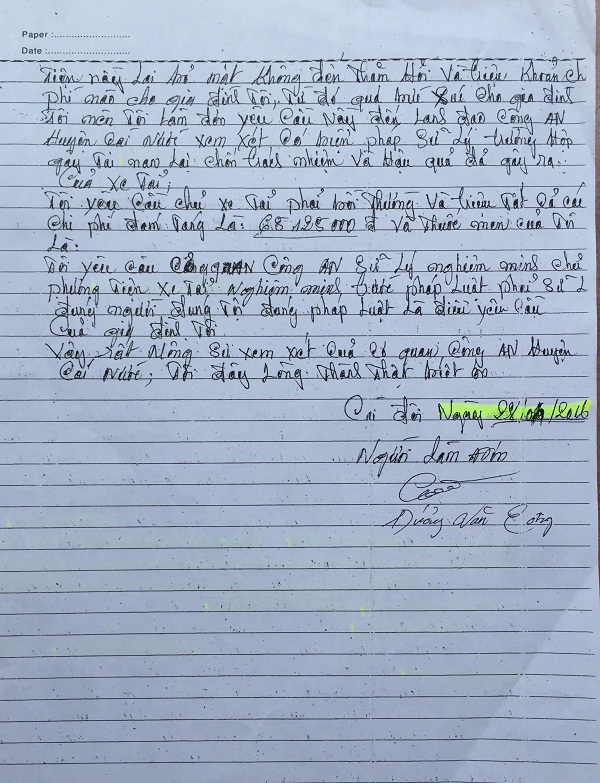 Paper :
Date :
Tiện này Lại trở mặt Không đến Thăm Hỏi Và
phí nào cho gia đình Tôi, Từ đó quá cho gia đình
Tôi nên Tôi Làm đơn yêu Cầu Này đến Lanh đạo Công AN
Huyện Cái Nước xem Xét Có biện pháp Sử Lý trường Hợp
gây Tai nan Lại chối trách nhiệm Và Hậu quả đã gây ra.
Của Xe Tải;
Tôi yêu Cầu chủ xe Tải phải bồi Thường Và Tất Cả các
Chi phí đám Tang Là: 68 125 000 đ Và của Tôi
Là:
Tôi yêu Cầu Công AN Sử Lý nghiêm minh chủ
phương Tiện Xe Tải Nghiêm minh trước pháp Luật phải Sử L
đúng người đúng Tội đúng pháp Luật Là điều yêu Cầu
Của gia đình Tôi
Vậy Rất Mông Sự xem xét Của Cơ quan Công AN Huyện
Cái Nước; Tôi Thành Thật biết ơn
Cái Đôi Ngày /2016
Người Làm đơn
Dương Văn